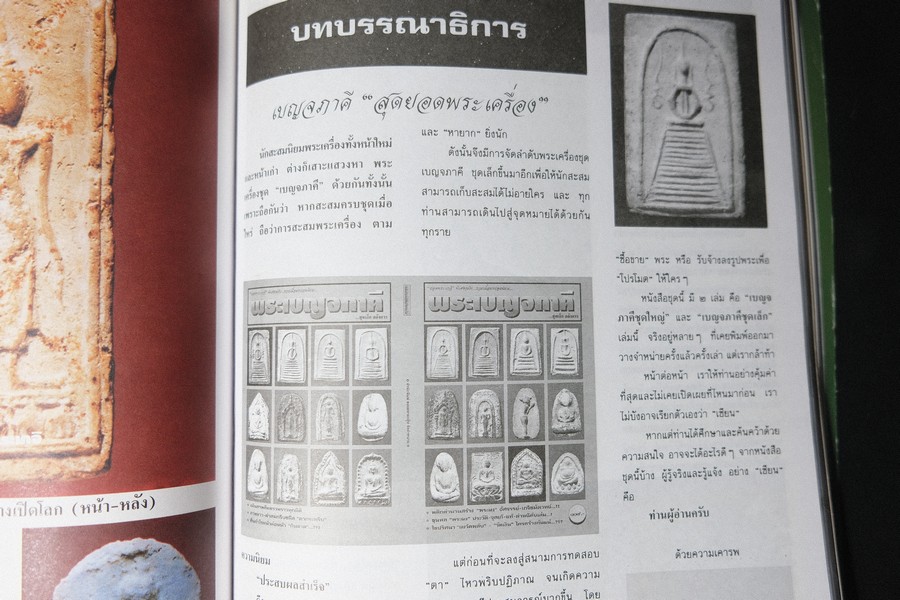 างเปิดโลก (หน้า-หลัง)
บทบรรณาธิการ
เบญจภาคี “สุดยอดพระเครื่อง”
นักสะสมนิยมพระเครื่องทั้งหน้าใหม่
และหน้าเก่า ต่างก็เสาะแสวงหา พระ
เครื่องชุด "เบญจภาคี" ด้วยกันทั้งนั้น
เพราะถือกันว่า หากสะสมครบชุดเมื่อ
ไหร่ ถือว่าการสะสมพระเครื่อง ตาม
พระเบญจภาคี
พระเบญจภาคี
ความนิยม
"ประสบผลสำเร็จ"
และ "หายาก" ยิ่งนัก
ดังนั้นจึงมีการจัดลำดับพระเครื่องชุด
เบญจภาคี ชุดเล็กขึ้นมาอีกเพื่อให้นักสะสม
สามารถเก็บสะสมได้ไม่อายใคร และ ทุก
ท่านสามารถเดินไปสู่จุดหมายได้ด้วยกัน
ทุกราย
แต่ก่อนที่จะลงสู่สนามการทดสอบ
"ตา" ไหวพริบปฏิภาณ จนเกิดความ
"ซื้อขาย" พระ หรือ รับจ้างลงรูปพระเพื่อ
"โปรโมต" ให้ใครๆ
หนังสือชุดนี้ มี ๒ เล่ม คือ "เบญจ
ภาคีชุดใหญ่" และ "เบญจภาคีชุดเล็ก"
เล่มนี้ จริงอยู่หลายๆ ที่เคยพิมพ์ออกมา
วางจำหน่ายครั้งแล้วครั้งเล่า แต่เรากล้าท้า
หน้าต่อหน้า เราให้ท่านอย่างคุ้มค่า
ที่สุดและไม่เคยเปิดเผยที่ไหนมาก่อน เรา
ไม่บังอาจเรียกตัวเองว่า "เซียน"
หากแต่ท่านได้ศึกษาและค้นคว้าด้วย
ความสนใจ อาจจะได้อะไรดีๆ จากหนังสือ
ชุดนี้บ้าง ผู้รู้จริงและรู้แจ้ง อย่าง "เซียน"
คือ
ท่านผู้อ่านครับ
ด้วยความเคารพ